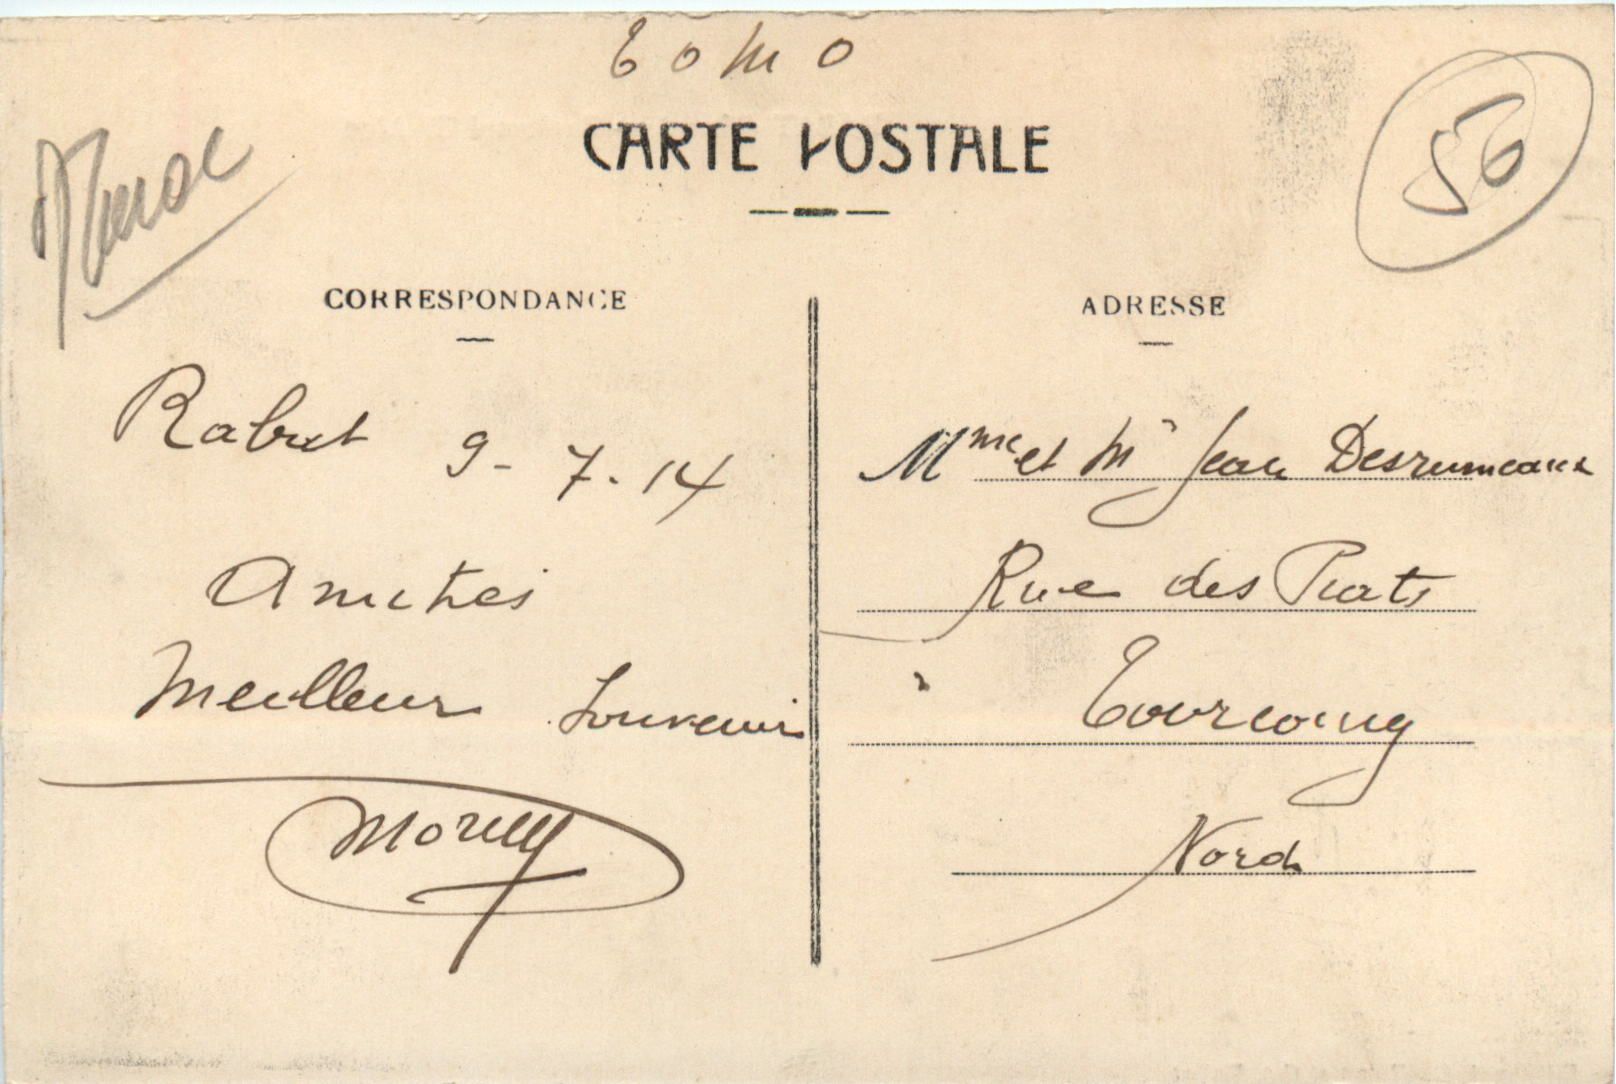 Tomo
CARTE POSTALE
Maroc
50
CORRESPONDANCE
ADRESSE
Rabat 9-7.14
Amitiés
Meilleur Souvenir
Mme et Mr Jean Desrumeaux
Rue des Piats
Tourcoing
Nord